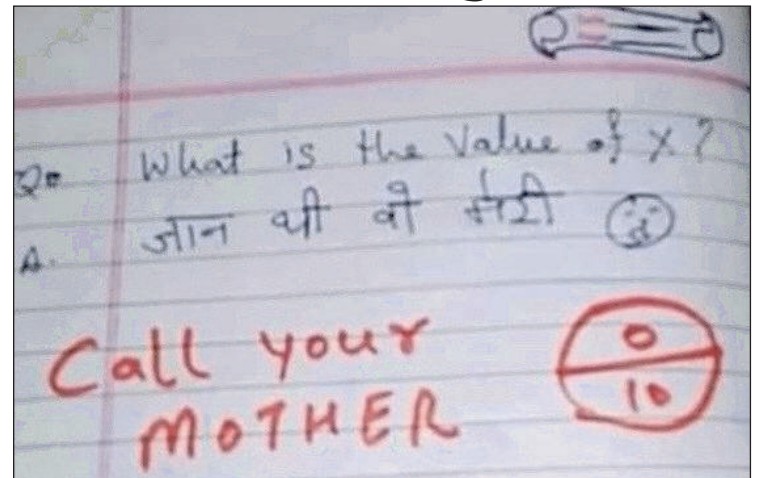 Q. What is the Value of X?
A. जान थी वो मेरी
Call your
MOTHER
0
10